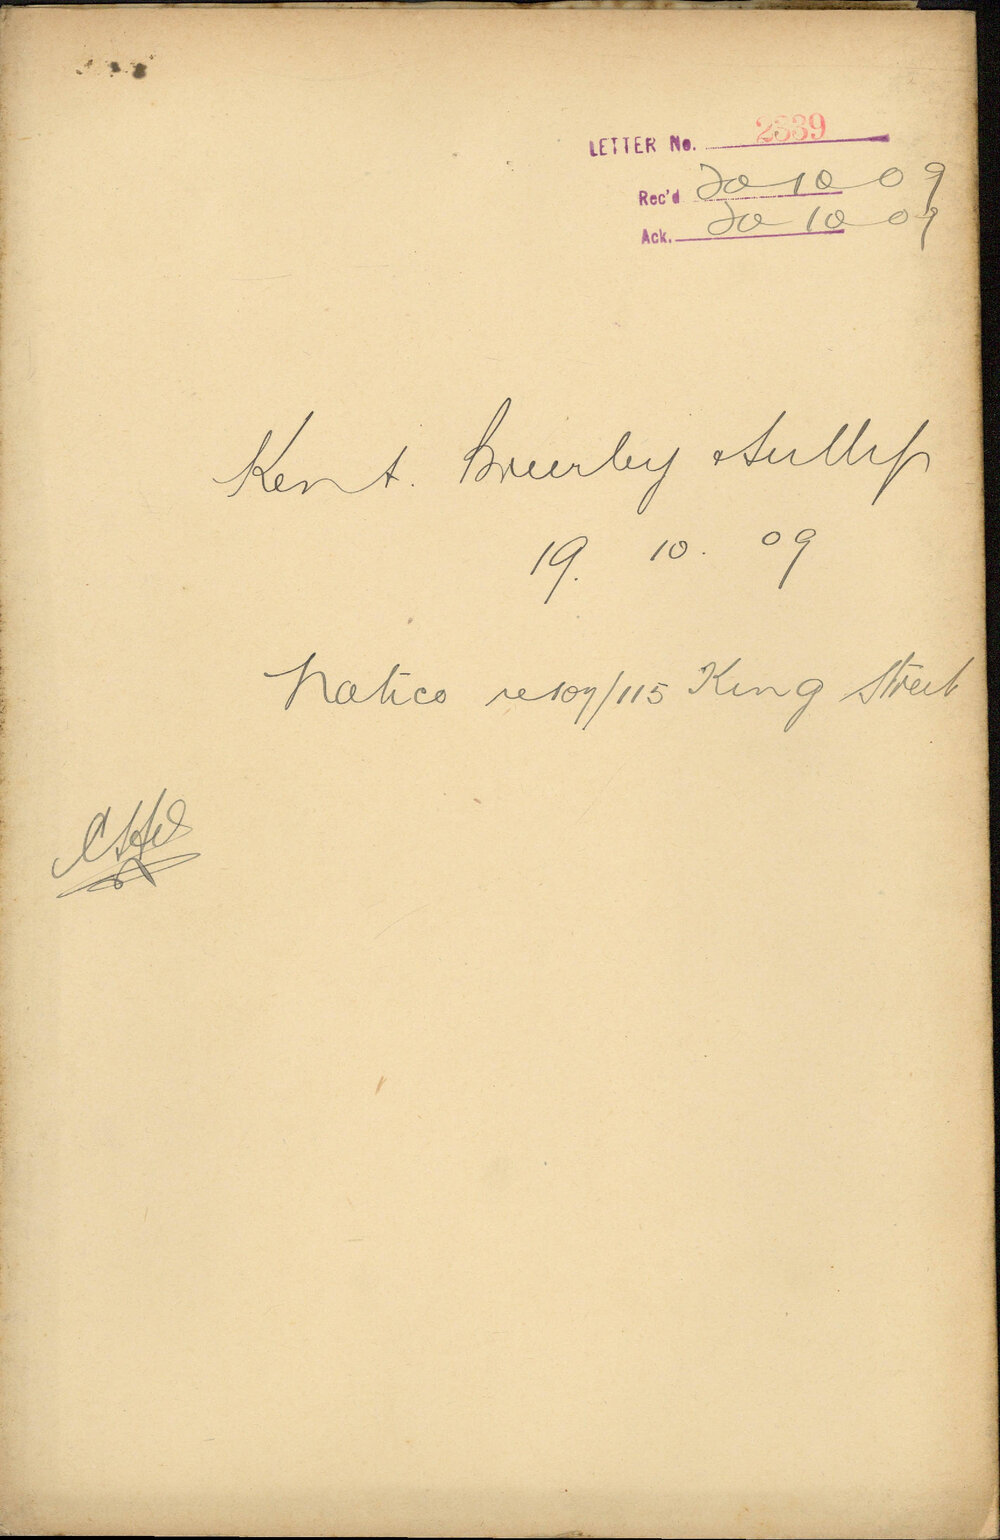 LETTER No. 2339
Rec'd 20 10 09
Ack. 20 10 09
Kent. Brierley
19. 10. 09
Notice re 107/115 King Street